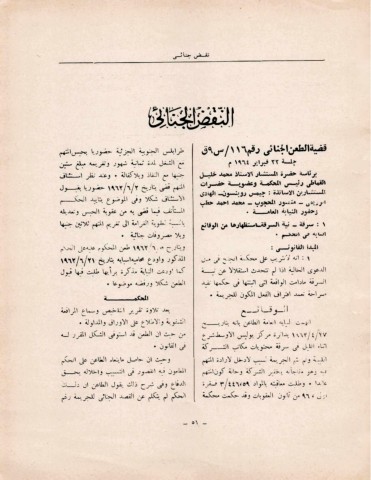 نقض جنائي
النقض الجنائي
قضية الطعن الجنائي رقم ١١٦/س ٩ق
جلسة ٢٢ فبراير ١٩٦٤ م
برئاسة حضرة المستشار الاستاذ محمد خليل
القماطي رئيس المحكمة وعضوية حضرات
المستشارين الاساتذة : جيمس روبنسون ـ الهادي
ـ منصور المحجوب ـ محمد احمد حطب
وحضور النيابة العامة ٠
١ ـ سرقة ـ نية السرقة ـ استظهارها من الوقائع
المبدأ القانوني :
١ ـ انه لا تثريب على محكمة الجنح في مثل
الدعوى الحالية اذا لم تتحدث استقلالا عن نية
السرقة مادامت الواقعة التي اثبتتها في حكمها تفيد
صراحة تعمد اقتراف الفعل المكون للجريمة ٠
الوقائع
اتهمت النيابة العامة الطاعن بأنه بتاريخ
بدائرة مركز بوليس الاوسط شرع
في سرقة محتويات مكاتب الشركة
ولم تتم الجريمة لسبب لارادة المتهم
وهو مفاجأته بخفير الشركة وحالة كون المتهم
وطلبت معاقبته بالمواد
من قانون العقوبات وقد حكمت محكمة
طرابلس الجنوبية الجزئية حضوريا بحبس المتهم
مع الشغل لمدة ثمانية شهور وتغريمه مبلغ ستين
جنيها مع النفاذ وبلا كفالة ٠ وعند استئناف
المتهم قضي بتاريخ ١٩٦٢/٦/٢ حضوريا بقبول
الاستئناف شكلا وفي الموضوع بتأييد الحكم
المستأنف فيما قضى به من عقوبة الحبس وتعديله
بالنسبة لعقوبة الغرامة الى تغريم المتهم ثلاثين جنيها
وبلا مصروفات جنائية ٠
وبتاريخ ١٩٦٢/٦ طعن المحكوم عليه في الحكم
المذكور واودع محاميه اسبابه بتاريخ ١٩٦٢/٦/٢١
كما اودعت النيابة مذكرة برأيها طلبت فيها قبول
الطعن شكلا ورفضه موضوعا ٠
المحكمة
بعد تلاوة تقرير التلخيص وسماع المرافعة
الشفوية والاطلاع على الاوراق والمداولة ٠
من حيث ان الطعن قد استوفى الشكل المقرر
في القانون ٠
وحيث ان حاصل ماينعاه الطاعن على الحكم
المطعون فيه القصور في التسبيب واخلاله بحق
الدفاع وفي شرح ذلك يقول الطاعن ان
الحكم لم يتكلم عن القصد الجنائي للجريمة رغم
ـ ٥٦ ـ